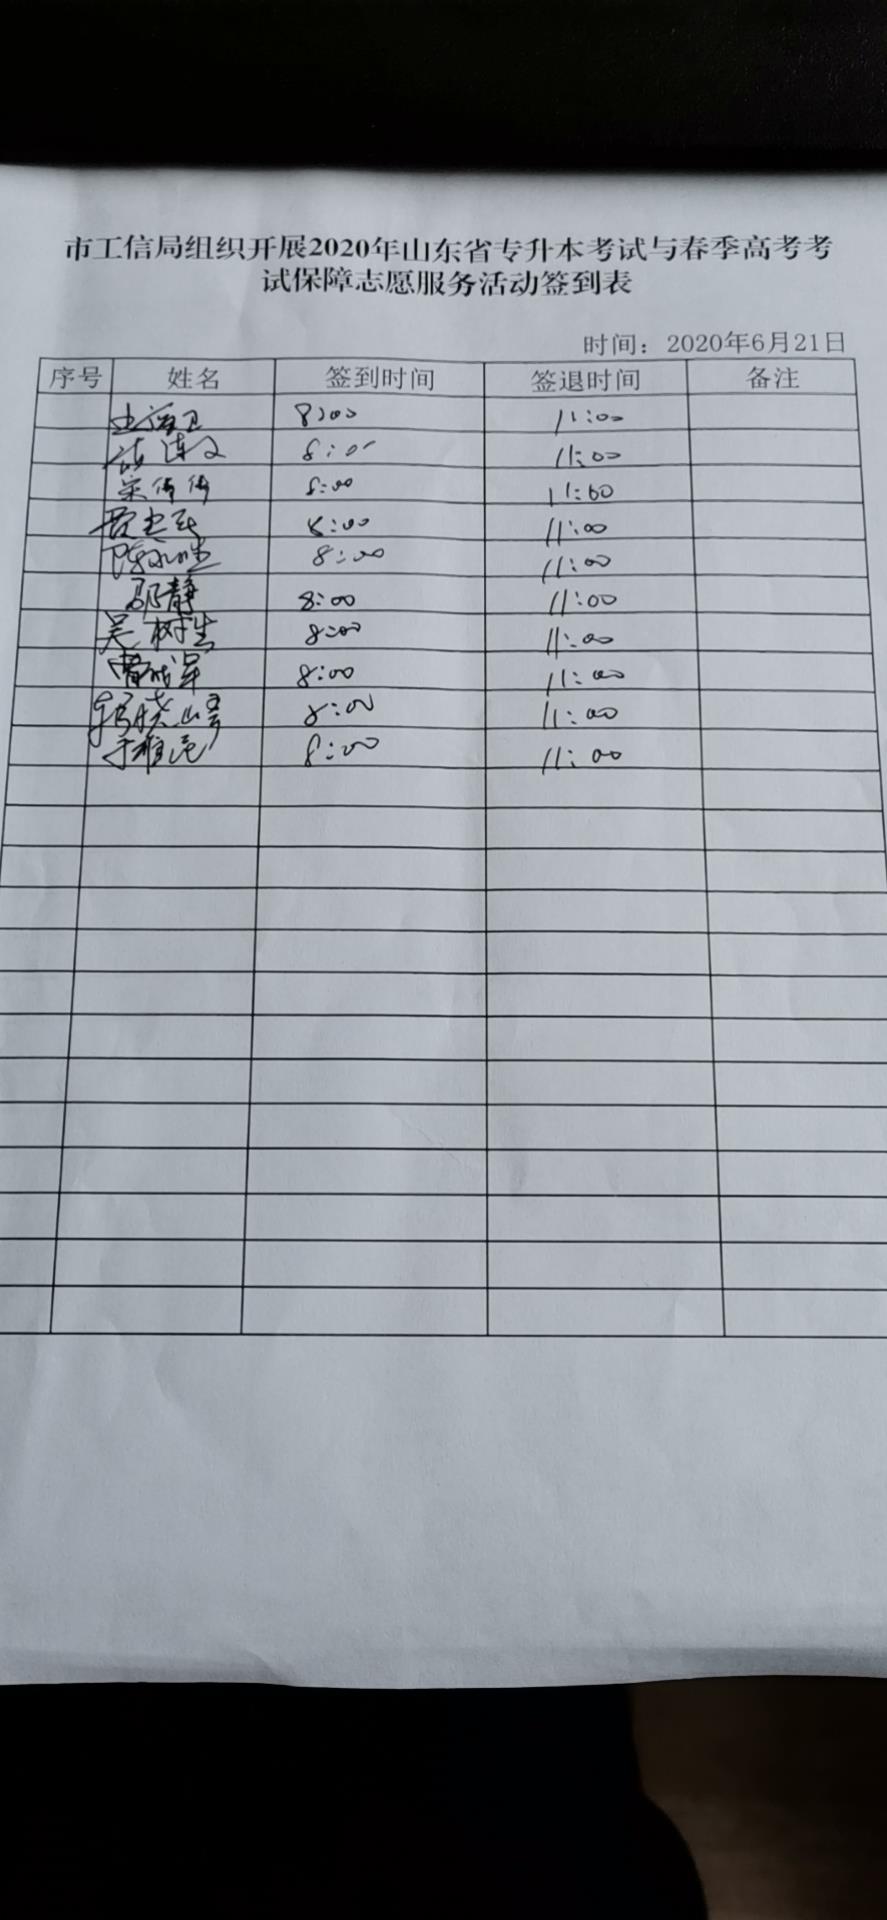 市工信局组织开展2020年山东省专升本考试与春季高考考
试保障志愿服务活动签到表
时间：2020年6月21日
序号 姓名 签到时间 签退时间 备注
8:00 11:00
8:00 11:00
宋倩倩 8:00 11:00
8:00 11:00
8:00 11:00
邵静 8:00 11:00
吴树生 8:00 11:00
曹成军 8:00 11:00
韩晓峰 8:00 11:00
于维亮 8:00 11:00